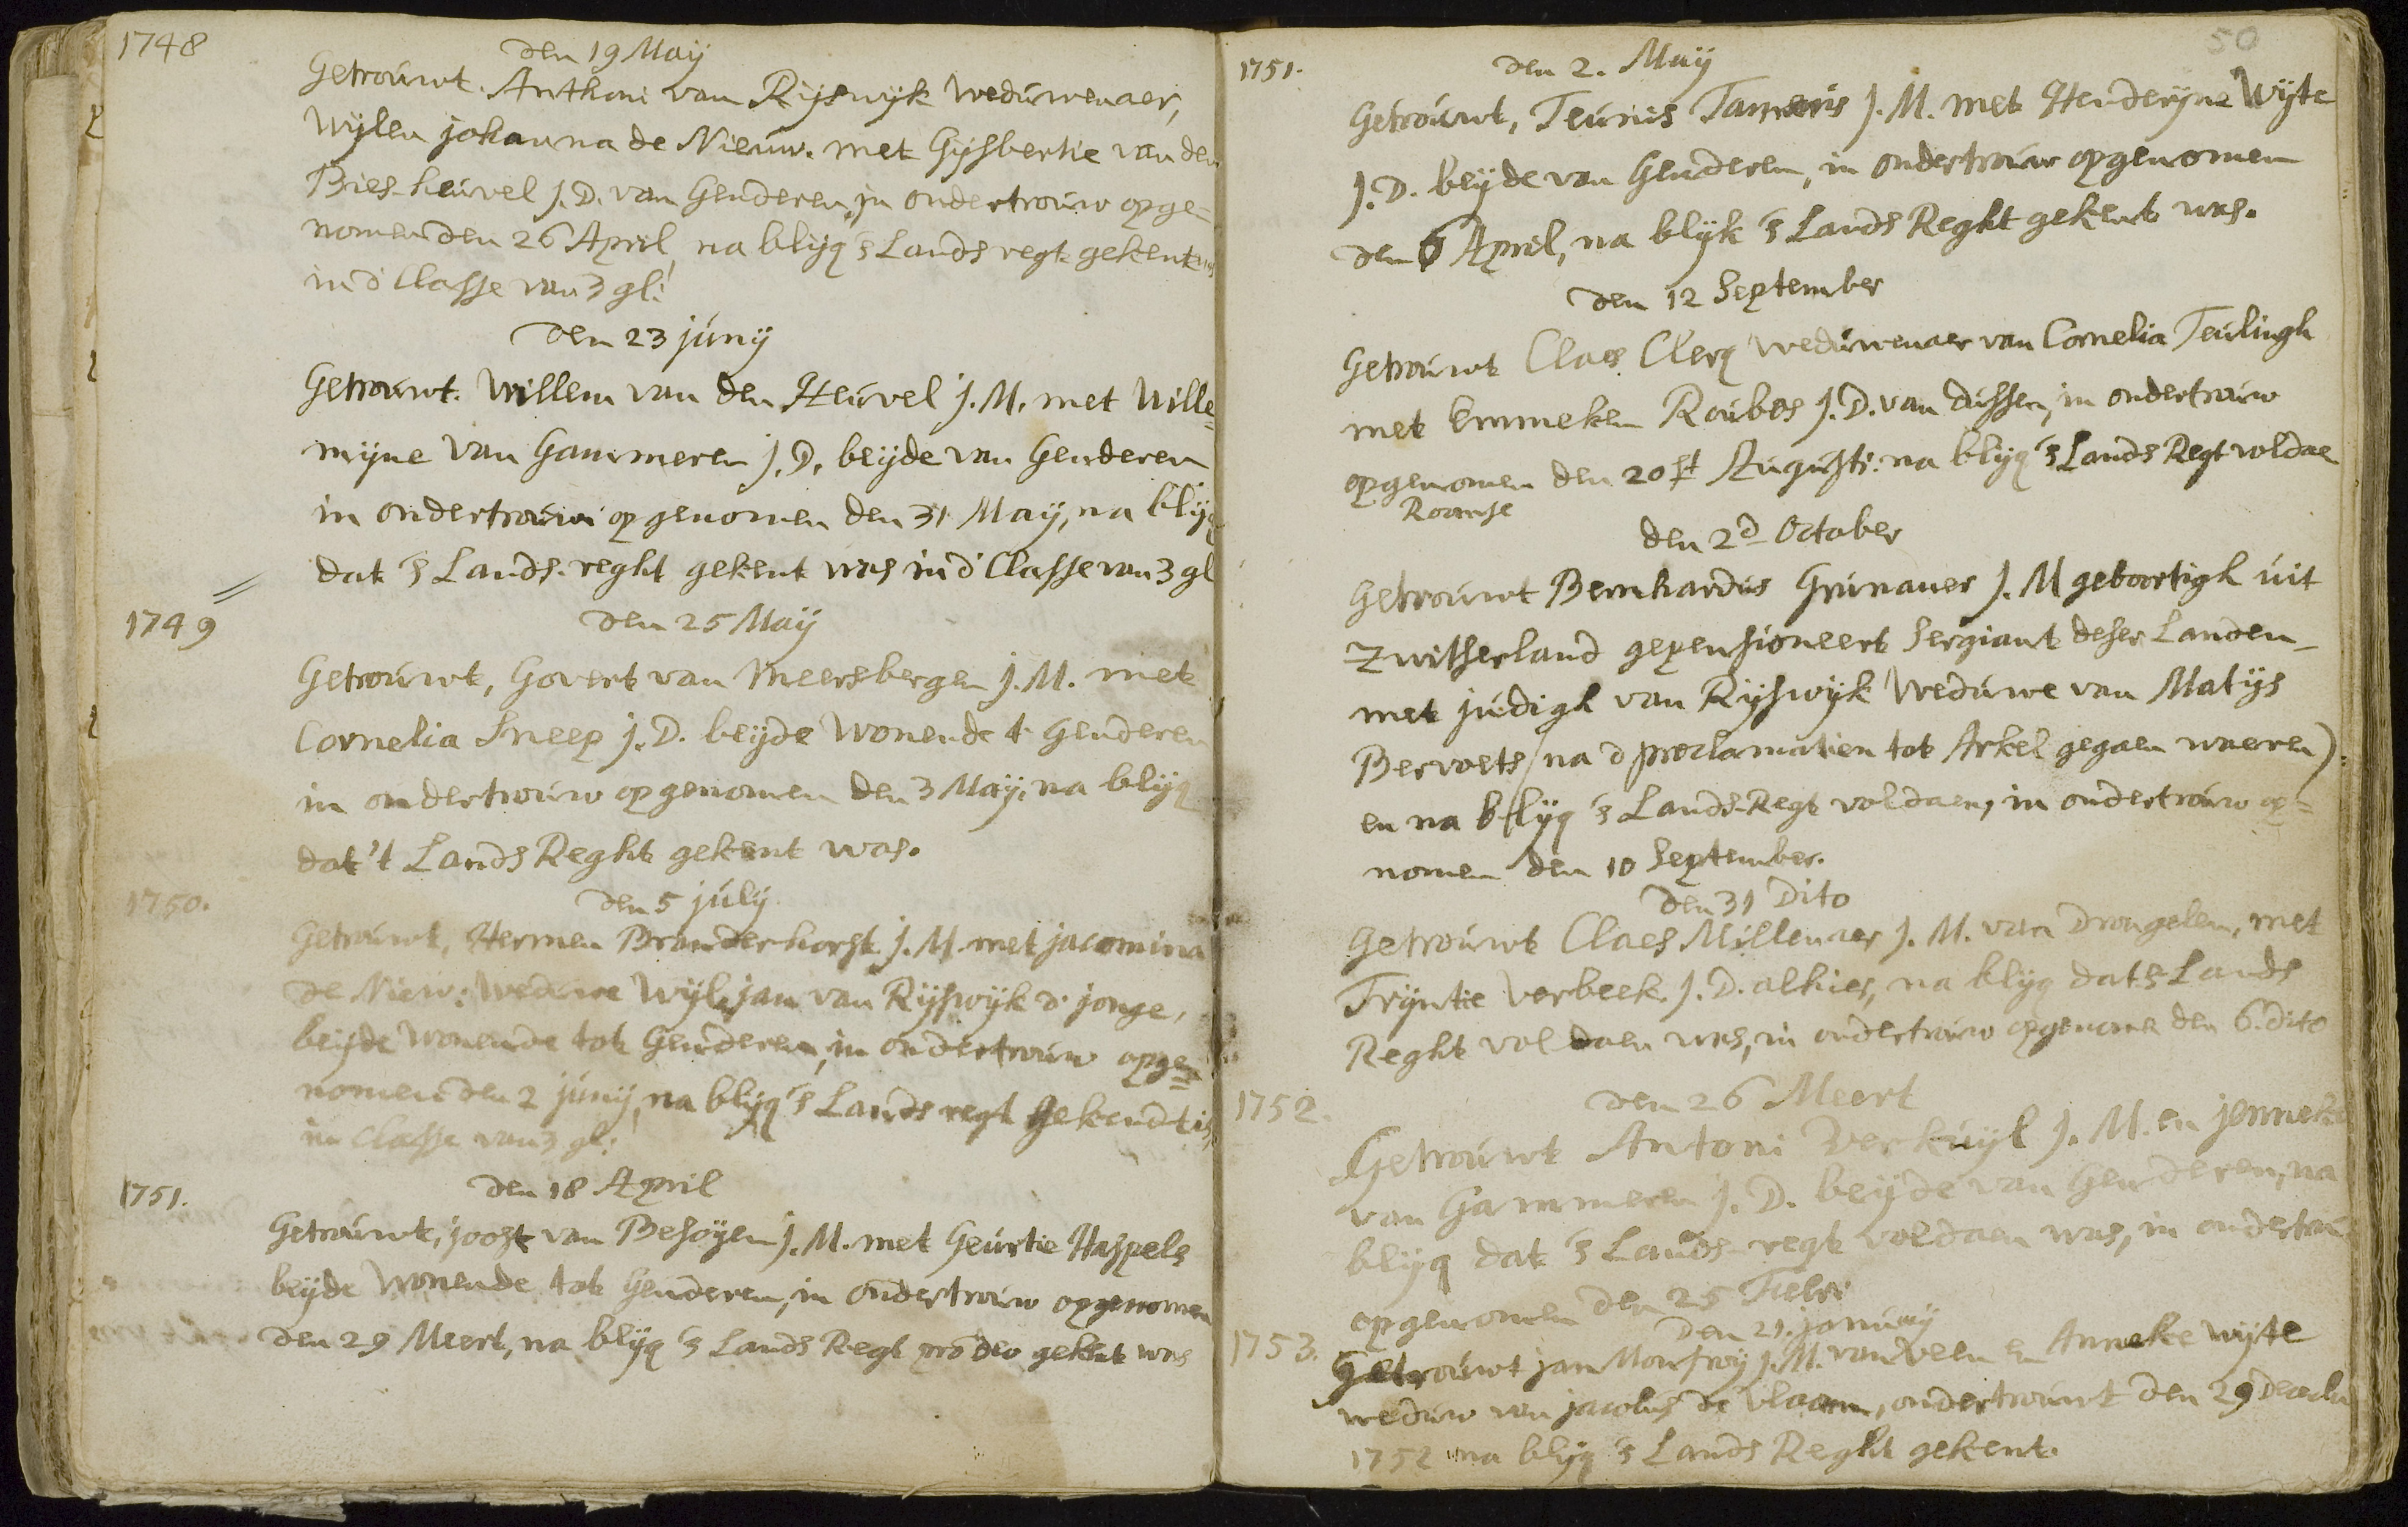 1748
den 19 Maÿ
Getrouwt. Anthoni van Rijswijk weduwenaer,
wijlen johanna de Nieuw. met Gijsbertie van den
Bies-heuvel J. D. van Genderen, in ondertrouw opge=
nomen den 26 April, na blijq 's Lands regt gekent
in d' Classe van 3 gl:
den 23 junÿ
Getrouwt. Willem van den Heuvel J. M. met Wille=
mijne van Gammeren J. D. beijde van Genderen
in ondertrouw opgenomen den 31 May, na blijq
dat 's Lands-reght gekent was in d' Classe van 3 gl
1749
den 25 Maÿ
Getrouwt, Govert van Meersbergen J. M. met
Cornelia Sneep J. D. beijde Wonende t. Genderen
in ondertrouw opgenomen den 3 Maÿ, na blijq
dat 't Lands Reght gekent was.
1750.
den 5 julÿ
Getrouwt, Hermen Branderhorst J. M. met jacomina
de Niew: Weduwe Wijl. jan van Rijswijk d' jonge,
beijde Wonende tot Genderen, in ondertrouw opge=
nomen den 2 junÿ, na blijq 's Lands regt gekendt is,
in Classe van 3 gl:
1751.
den 18 April
Getrouwt, joost van Besoijen J. M. met Geurtie Haspels
beijde Wonende tot Genderen, in ondertrouw opgenomen
den 29 Meert, na blijq 's Lands Regt pro deo gekent was
50
1751.
den 2. Maÿ
Getrouwt, Teunis Tameris J. M. met Henderijne Wijte
J. D. beijde van Genderen, in ondertrouw opgenomen
den 6 April, na blijk 's Lands Reght gekent was.
den 12 September
Getrouwt Claes Clerq weduwenaer van Cornelia Teulingh
met Emmeken Roubos J. D. van dussen, in ondertrouw
opgenomen den 20st Augusti: na blijq 's Lands Regt voldae
Roomse
den 2d October
Getrouwt Bernhardus Grunauer J. M geboortigh uit
Zwitserland gepensioneert Sergiant deser Landen
met judigh van Rijswijk Weduwe van Matijs
Bervoets (na d proclamatien tot Arkel gegaen waeren)
en na blijq 's Lands-Regt voldaen, in ondertrouw op=
nomen den 10 September.
den 31 Dito
Getrouwt Claes Millenaer J. M. van Drongelen, met
Trijntie Verbeek J. D. alhier, na blijq dat 's Lands
Reght voldaen was, in ondertrouw opgenome den 6. dito
1752.
den 26 Meert
Getrouwt Antoni Verkuijl J. M. en jenneke
van Gammeren J. D. beijde van Genderen, na
blijq dat 's Lands-regt voldaen was, in ondertrou
opgenomen den 25 Febr:
1753.
den 21. januarÿ
Getrouwt jan Monfroij J. M. van veen en Anneke wijte
weduw van jacobus de vlaam, ondertrouwt den 29 Decemb
1752 na blijq 's Lands Reght gekent.